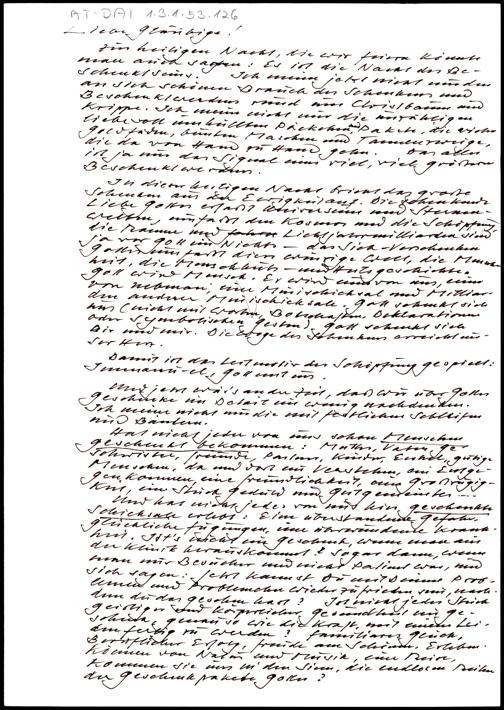 AT-DAI 1.3.1.53.126
Liebe Gläubige!
Zur heiligen Nacht, die wir feiern könnte
man auch sagen: Es ist die Nacht des Be-
schenktseins. Ich meine jetzt nicht nur den
an sich schönen Brauch des Schenkens und
Beschenktwerdens rund um Christbaum und
Krippe. Ich meine nicht nur die unzähligen
liebevoll umhüllten Päckchen, Pakete, die vielen
Goldfäden, bunten Maschen und Tannenzweige,
die da von Hand zu Hand gehn. Das alles
ist ja nur das Signal eines viel, viel größeren
Beschenktwerdens.
In dieser heiligen Nacht bricht das große
Schenken aus der Ewigkeit auf. Die schenkende
Liebe Gottes erfaßt Universum und Sternen-
welten, umfaßt den Kosmos und die Schöpfung,
die Räume und Lichtjahrmilliarden sind
ja vor Gott ein Nichts – das Sich-Verschenken
Gottes umfaßt diese winzige Welt, die Mensch-
heit, die Menschheits- und Heilsgeschichte.
Gott wird Mensch. Er wird einer von uns, einer
von nebenan, ein Minischicksal und Milliar-
den anderer Minischicksale. Gott schenkt sich
uns (nicht mit Worten, Botschaften, Deklarationen
oder symbolischen Gesten), Gott schenkt sich
Dir und mir. Die Woge des Schenkens erreicht un-
ser Herz.
Damit ist das Leitmotiv der Schöpfung gespielt:
Immanu-el, Gott mit uns.
Und jetzt wär's an der Zeit, daß wir über Gottes
Geschenke im Detail ein wenig nachdenken.
Ich meine nicht nur die mit festlichen Schleifen
und Bändern.
Hat nicht jeder von uns schon Menschen
geschenkt bekommen: Mutter, Vater, Ge-
schwister, Freunde, Partner, Kinder, Enkel, gütige
Menschen, da und dort ein Verstehen, ein Entge-
genkommen, eine Freundlichkeit, eine Großzügig-
keit, ein Stück Geduld und Gutgemeintes...
Und hat nicht jeder von uns hier geschenkte
Schicksale erlebt: Eine überstandene Gefahr,
glückliche Fügungen, eine überwundene Krank-
heit. Ist's nicht ein Geschenk, wenn man aus
der Klinik herauskommt? Sogar dann, wenn
man nur Besucher und nicht Patient war, und
sich sagen: Jetzt kannst Du mit Deinen Prob-
lemen und Problemchen wieder zufrieden sein, nach-
dem du das gesehen hast? Ist nicht jedes Stück
geistiger und körperlicher Gesundheit ein Ge-
schenk, genauso wie die Kraft, mit einem Lei-
den fertig zu werden? Familiäres Glück,
Beruflicher Erfolg, Freude am Schönen, Erleben-
können von Natur und Musik, eine Reise,
kommen sie uns in den Sinn, die endlosen Reihen
der Geschenkpakete Gottes?